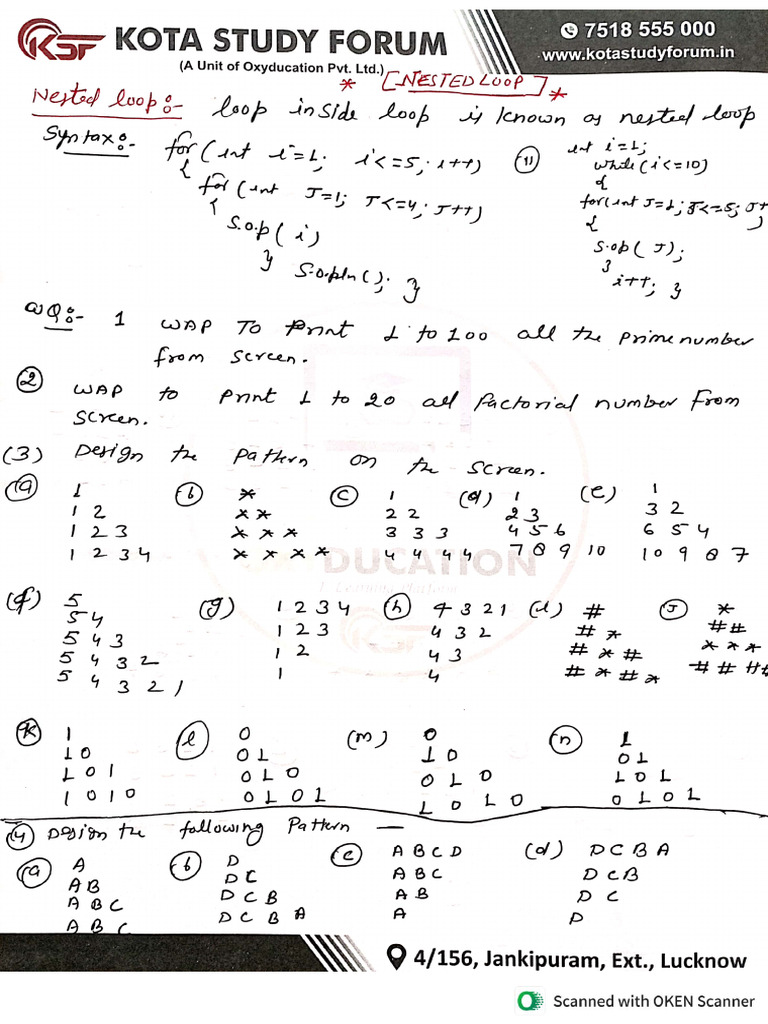 KSF KOTA STUDY FORUM
(A Unit of Oxyducation Pvt. Ltd.)
7518 555 000
www.kotastudyforum.in
* [NESTED LOOP] *
Nested loop:- loop inside loop is known as nested loop
Syntax:-
for( int i=1; i<=5; i++)
{ for( int J=1; J<=4; J++)
{
S.o.p( i)
}
S.o.pln(); }
(11) int i=1;
while( i<=10)
{
for(int J=1; J<=5; J++
)
{
S.op( J);
}
i++; }
WQ:- 1 WAP TO Print 1 to 100 all the prime number
from screen.
2 WAP to Print 1 to 20 all factorial number from
screen.
(3) Design the Pattern on the screen.
(a)
1
1 2
1 2 3
1 2 3 4
(b)
*
* *
* * *
* * * *
(c)
1
2 2
3 3 3
4 4 4 4
(d)
1
2 3
4 5 6
7 8 9 10
(e)
1
3 2
6 5 4
10 9 8 7
DUCATION
(f)
5
5 4
5 4 3
5 4 3 2
5 4 3 2 1
(g)
1 2 3 4
1 2 3
1 2
1
(h)
4 3 2 1
4 3 2
4 3
4
(i)
#
# *
# * #
# * # *
(J)
*
# #
* * *
# # # #
(k)
1
1 0
1 0 1
1 0 1 0
(l)
0
0 1
0 1 0
0 1 0 1
(m)
0
1 0
0 1 0
1 0 1 0
(n)
1
0 1
1 0 1
0 1 0 1
(4) Design the following Pattern —
(a)
A
A B
A B C
A B C
(b)
D
D C
D C B
D C B A
(c)
A B C D
A B C
A B
A
(d)
D C B A
D C B
D C
D
4/156, Jankipuram, Ext., Lucknow
Scanned with OKEN Scanner